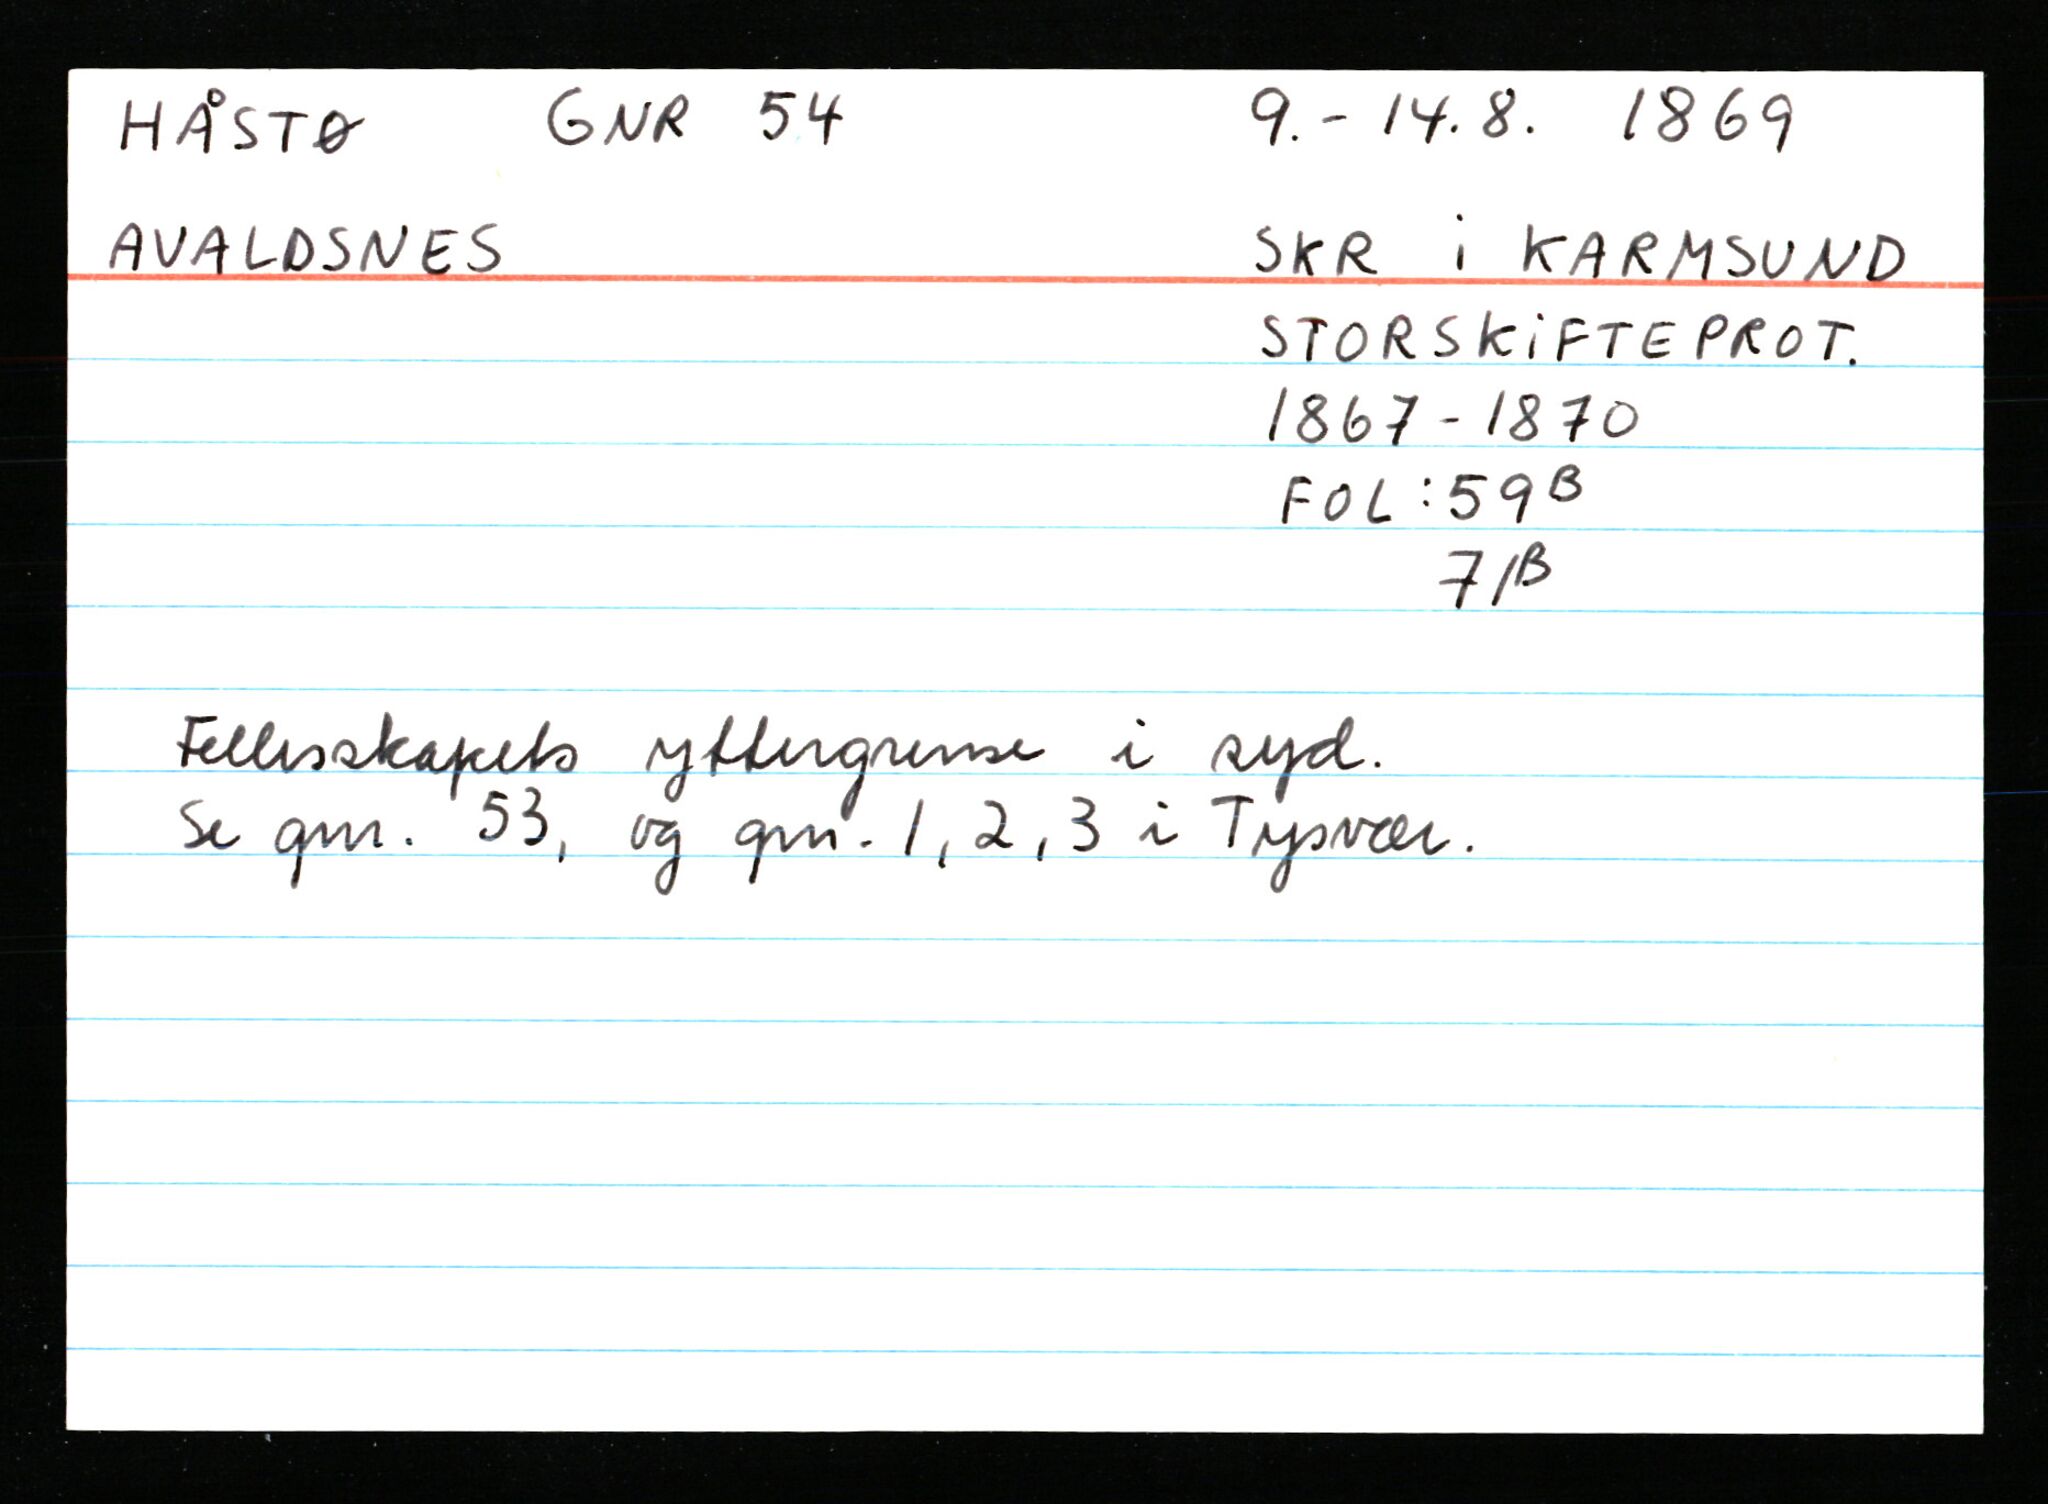 HÅSTØ GNR 54 9.-14.8. 1869
AVALDSNES SKR i KARMSUND
STORSKIFTEPROT.
1867-1870
FOL: 59B
71B
Fellesskapets yttergrense i syd.
Se gnr. 53, og gnr. 1, 2, 3 i Tysvær.